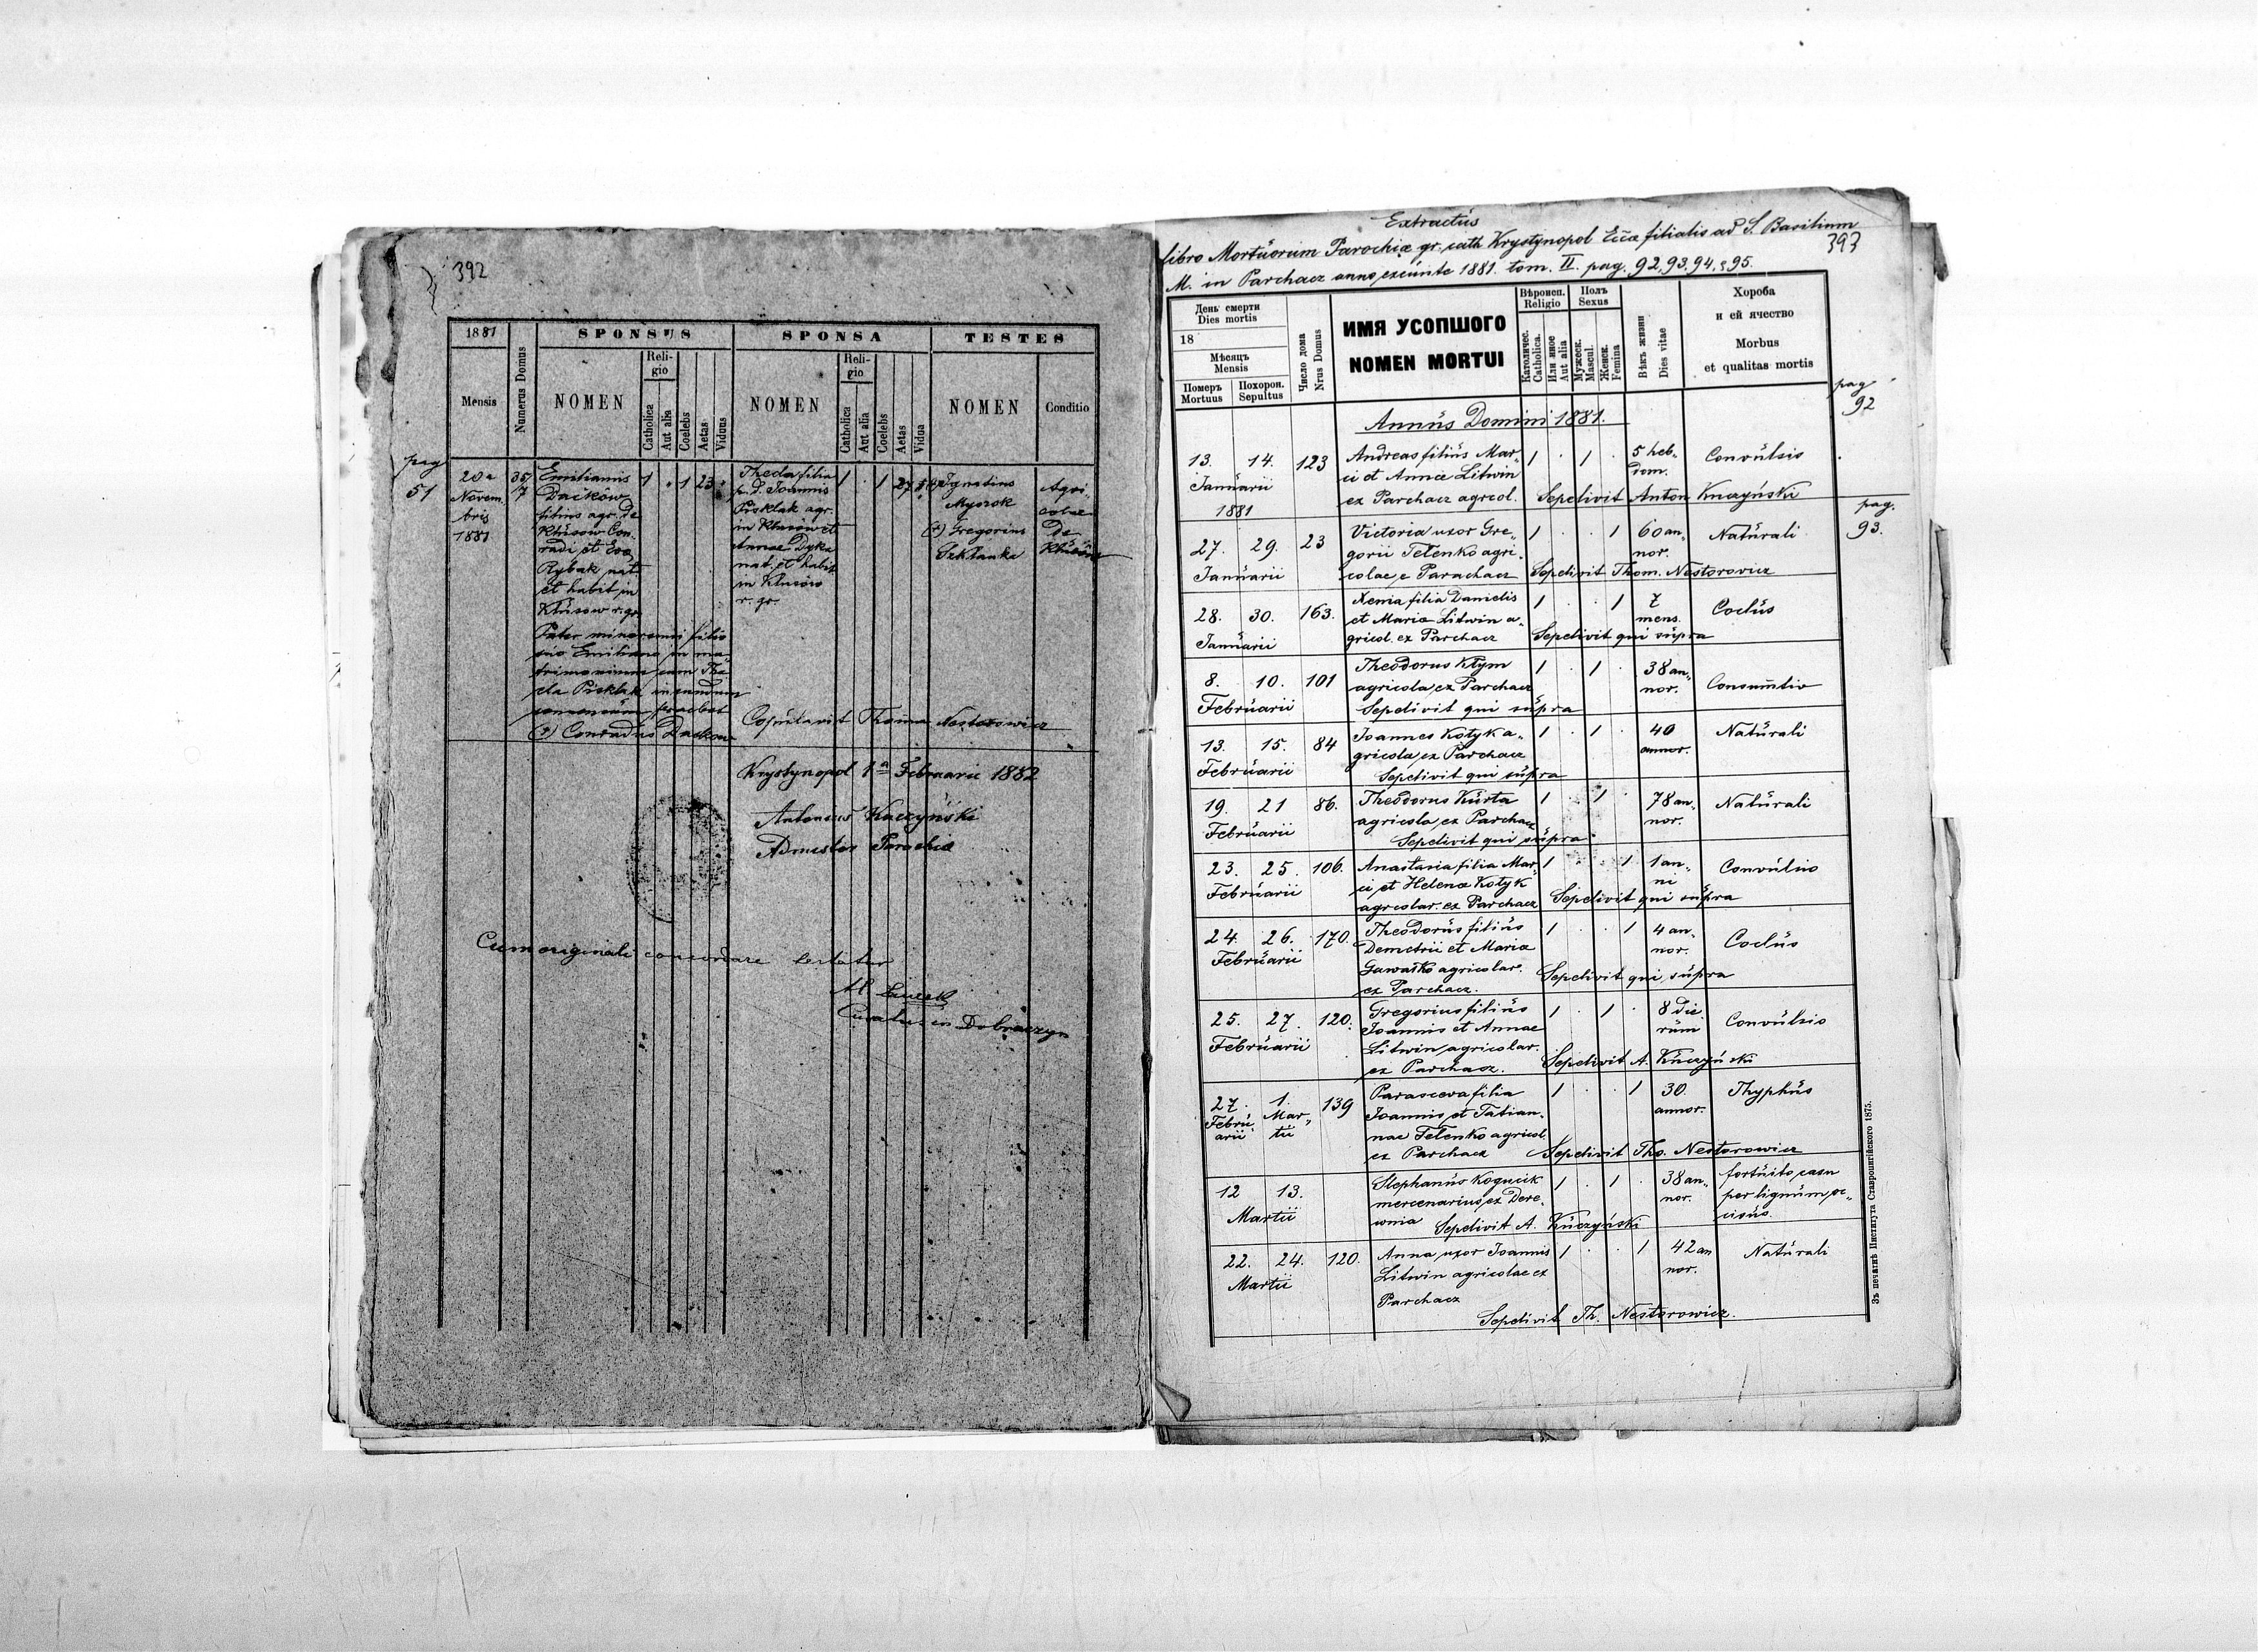 392
1881
SPONSUS
SPONSA
TESTES
Mensis
Numerus Domus
NOMEN
Religio
Catholica
Aut alia
Coelebs
Aetas
Viduus
NOMEN
Religio
Catholica
Aut alia
Coelebs
Aetas
Vidua
NOMEN
Conditio
pag
51
20a
Novem
bris
1881
35/7
Emilianus
Daćków
filius agr. de
Kłusow Con
radi et Eva
Rybak nat
et habit in
Kłusow r. gr.
1 . 1 23 .
Thecla filia
p. d. Joannis
Pisklak agr.
in Kłusów et
Annae Dyka
nat. et habit
in Klusów
r. gr.
1 . 1 27
(+) Ignatius
Mysrok
(+) Gregorius
Seklanka
Agri
colae
De
Kłusów
Pater minorenni filio
suo Emiliano in ma
trimonium cum The
cla Pisklak ineundum
consensum praebet
(+) Conradus Daćkow
Copulavit Thoma Nestorowicz
Krystynopol 1a Februarii 1882
Antonius Kuczyński
Admister Parochiae
Cum originali concordare testatur
Curatus in Dobraczyn
Extractus
libro Mortuorum Parochiæ gr. cath Krystynopol Eccæ filialis ad S. Basilium
393
M. in Parchacz anno exeunte 1881. tom. II. pag. 92, 93, 94, & 95.
День смерти
Dies mortis
18
Мѣсяць
Mensis
Померъ
Mortuus
Похорон.
Sepultus
Число дома
Nrus Domus
ИМЯ УСОПШОГО
NOMEN MORTUI
Вѣроисп.
Religio
Католичес.
Catholica.
Или иное
Aut alia
Полъ
Sexus
Мужеск.
Mascul.
Женск.
Femina
Вѣкъ жизни
Dies vitae
Хороба
и ей ячество
Morbus
et qualitas mortis
pag
92
Annus Domini 1881.
13. 14. 123 Andreas filius Mar„ 1 . 1 . 5 heb„ Convulsio
Januarii ci et Annæ Litwin dom.
1881 ex Parchacz agricol. Sepelivit Anton Kuczyński
pag.
93.
27. 29. 23 Victoria uxor Gre„ 1 . . 1 60 an„ Naturali
gorii Telenko agri„ nor.
Januarii colae e Parachacz Sepelivit Thom. Nestorovicz
28. 30. 163. Xenia filia Danielis 1 . . 1 7 Coclus
et Maria Litwin a„ mens.
Januarii gricol. ex Parchacz Sepelivit qui supra
8. 10. 101 Theodorus Kłym 1 . 1 . 38 an„ Consumtio
agricola, ex Parchacz nor.
Februarii Sepelivit qui supra
13. 15. 84 Joannes Kotyk a„ 1 . 1 . 40 Naturali
Februarii gricola, ex Parchacz annor.
Sepelivit qui supra
19. 21 86. Theodorus Kurta 1 . 1 . 78 an„ Naturali
Februarii agricola, ex Parchacz nor.
Sepelivit qui supra
23. 25. 106. Anastasia filia Mar„ 1 . . 1 1 an„ Convulsio
Februarii ci et Helenæ Kotyk ni
agricolar. ex Parchacz Sepelivit qui supra
24. 26. 170. Theodorus filius 1 . . 1 4 an„ Coclus
Februarii Demetrii et Mariæ nor.
Gawaśko agricolar. Sepelivit qui supra
ex Parchacz.
25. 27. 120. Gregorius filius 1 . 1 . 8 die Convulsio
Februarii Joannis et Annae rum
Litwin, agricolar.
ex Parchacz. Sepelivit A. Kuczyński
27. 1. 139 Parasceva filia 1 . . 1 30. Thyphus
Febru„ Mar„ Joannis et Tatian„ annor.
arii tii nae Telenko agricol.
ex Parchacz Sepelivit Tho. Nestorowicz
12 13. Stephanus Kogucik 1 . 1 . 38 an„ fortuito casu
mercenarius, ex Dere„ nor. per lignum oc„
Martii wnia Sepelivit A. Kuczyński cisus.
22. 24. 120. Anna, uxor Joannis 1 . . 1 42 an Naturali
Martii Litwin agricolae ex nor.
Parchacz
Sepelivit Th. Nestorowicz.
Зъ печатнѣ Института Ставропигійского 1875.